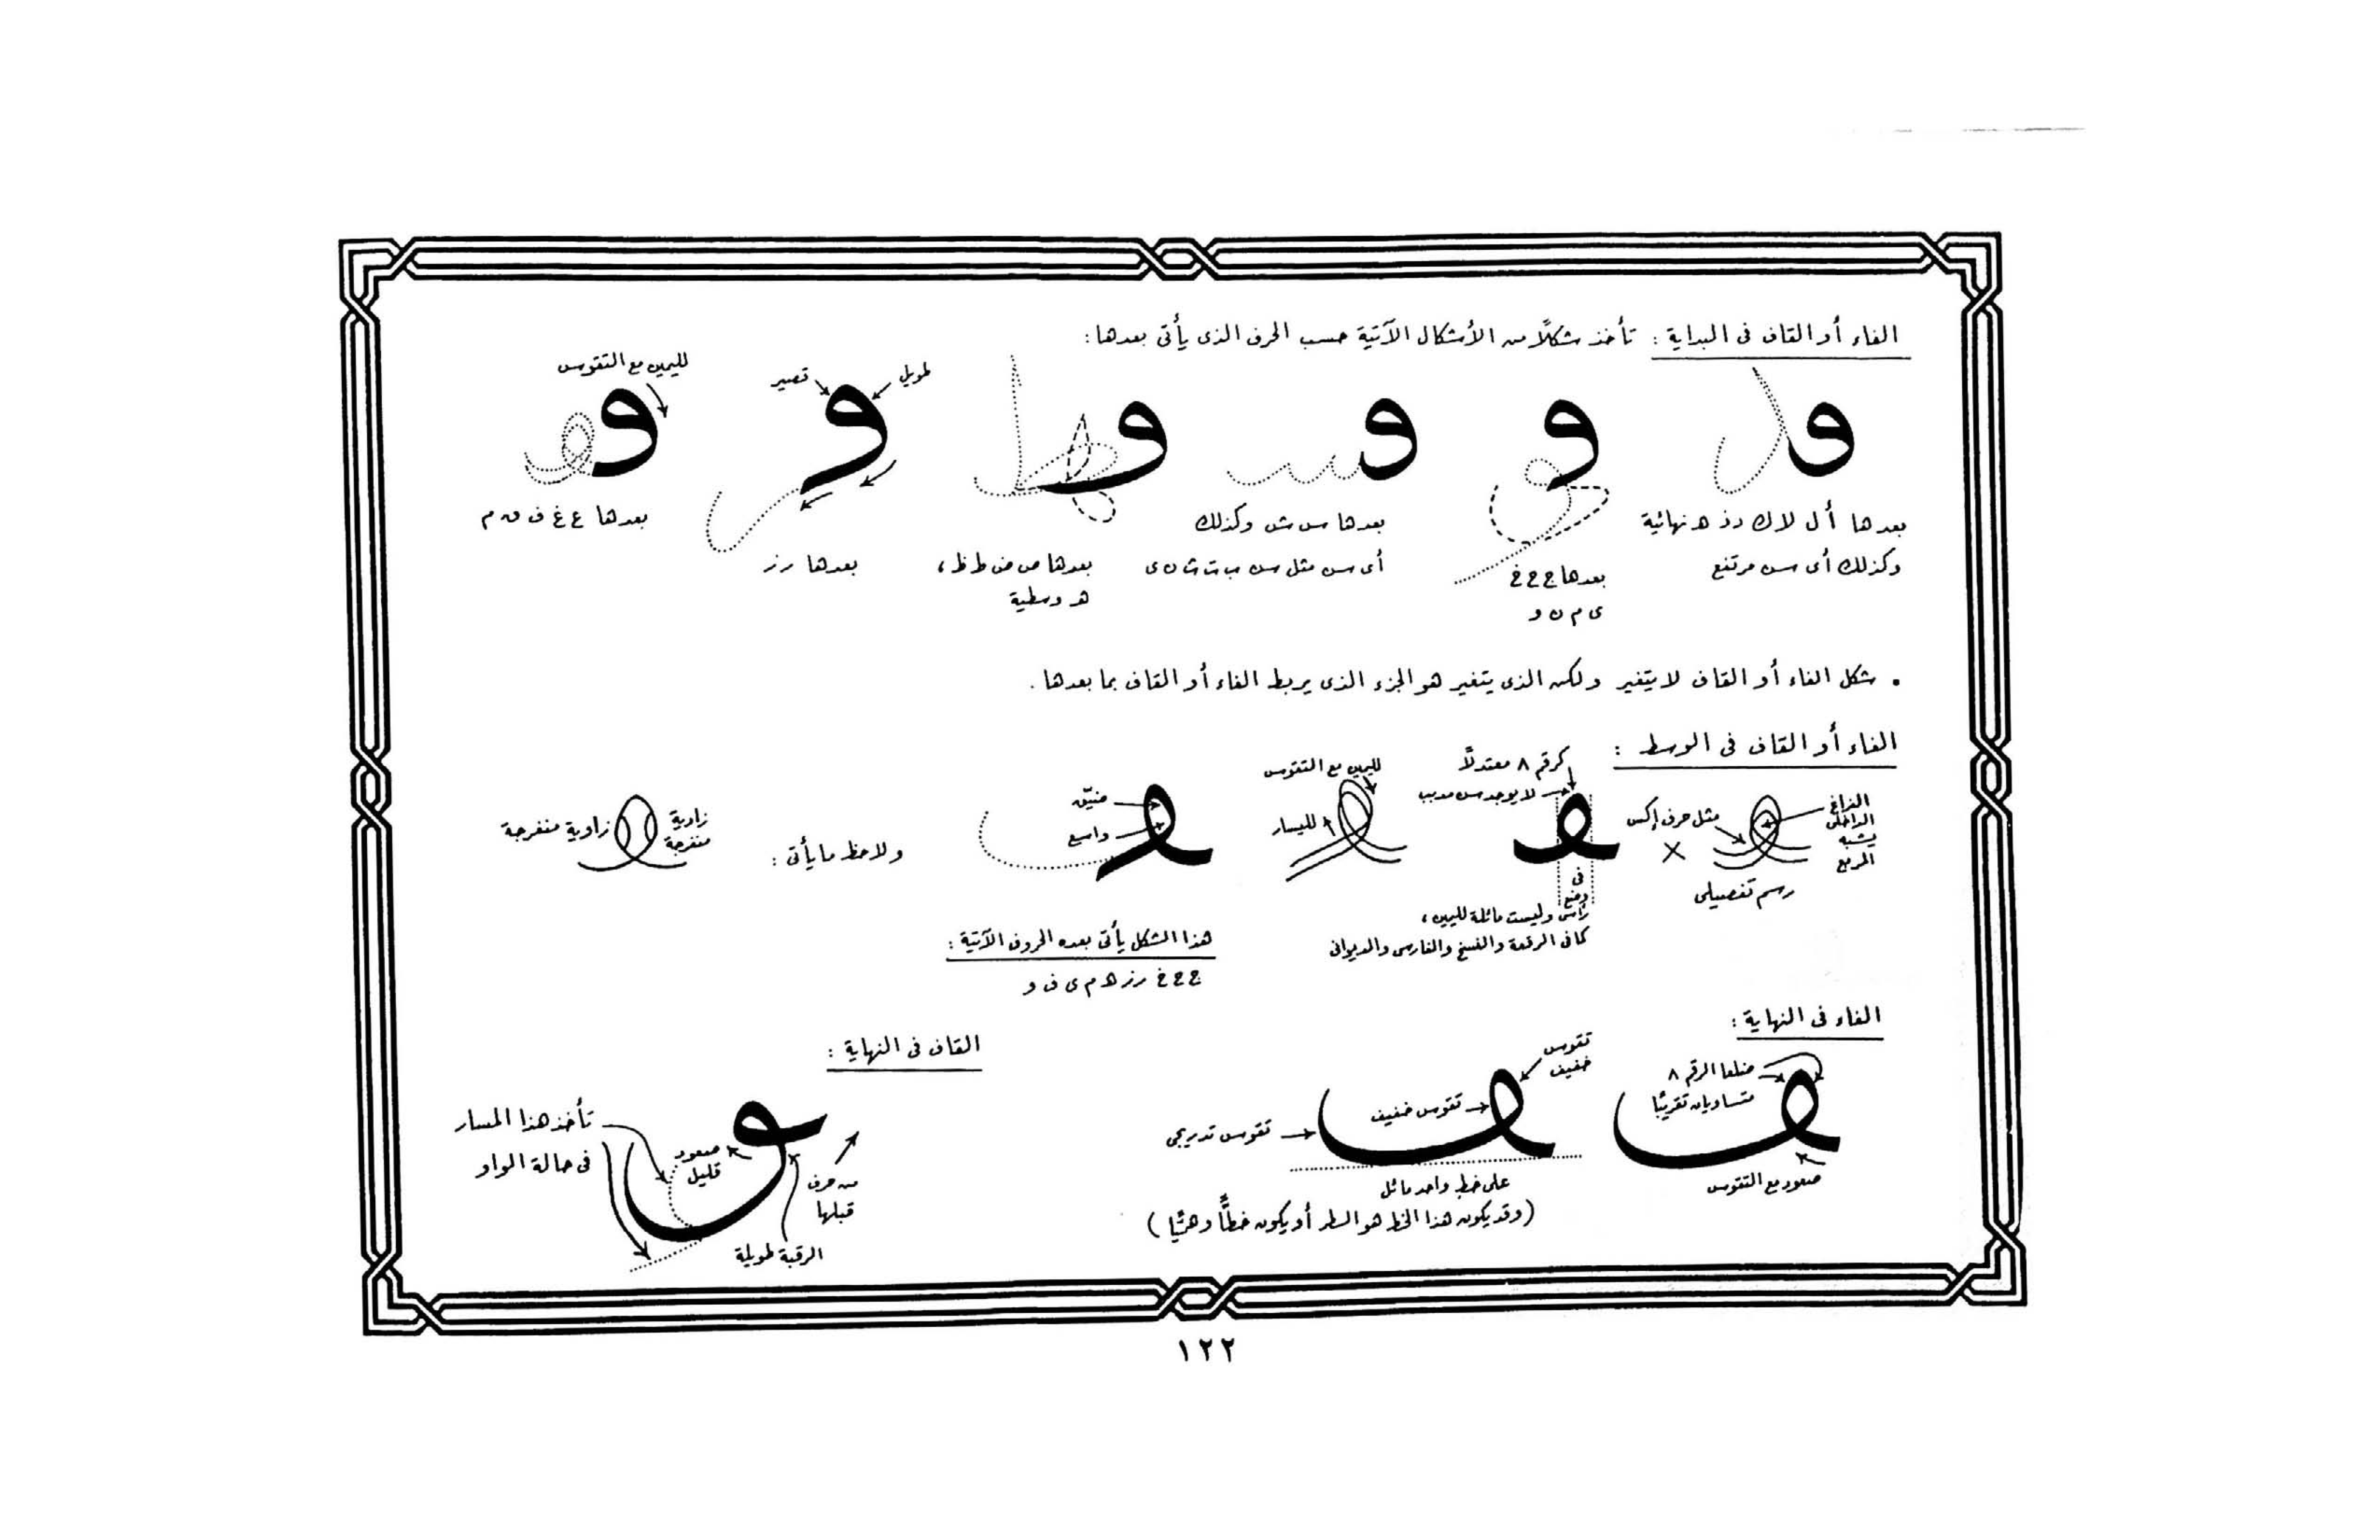 الفاء أو القاف فى البداية : تأخذ شكلًا من الأشكال الآتية حسب الحرف الذى يأتى بعدها :
طويل
قصير
لليمين مع التقوس
بعدها أ ل لا ك د ذ ه نهائية
وكذلك أى سن مرتفع
بعدها ج ح خ
ى م ن و
بعدها س ش وكذلك
أى سن مثل سن ب ت ث ن ى
بعدها ص ض ط ظ ،
هـ وسطية
بعدها ر ز
بعدها ع غ ف ق م
• شكل الفاء أو القاف لا يتغير ولكن الذى يتغير هو الجزء الذى يربط الفاء أو القاف بما بعدها .
الفاء أو القاف فى الوسط :
الفراغ
الداخلى
يشبه
المربع
مثل حرف إكس
رسم تفصيلى
كرقم ٨ معتدلًا
لا يوجد سن مدبب
فى
وضع
رأسى وليست مائلة لليمين ،
كما فى الرقعة والنسخ والفارسى والديوانى
لليمين مع التقوس
لليسار
ضيّق
واسع
هذا الشكل يأتى بعده الحروف الآتية :
ج ح خ ر ز ه م ى ف و
ولاحظ ما يأتى :
زاوية
منفرجة
زاوية منفرجة
الفاء فى النهاية :
ضلعا الرقم ٨
متساويان تقريبًا
صعود مع التقوس
تقوس
خفيف
تقوس خفيف
تقوس تدريجى
على خط واحد مائل
( وقد يكون هذا الخط هو السطر أو يكون خطًّا وهميًّا )
القاف فى النهاية :
تأخذ هذا المسار
فى حالة الواو
صعود
قليل
من حرف
قبلها
الرقبة طويلة
١٢٢